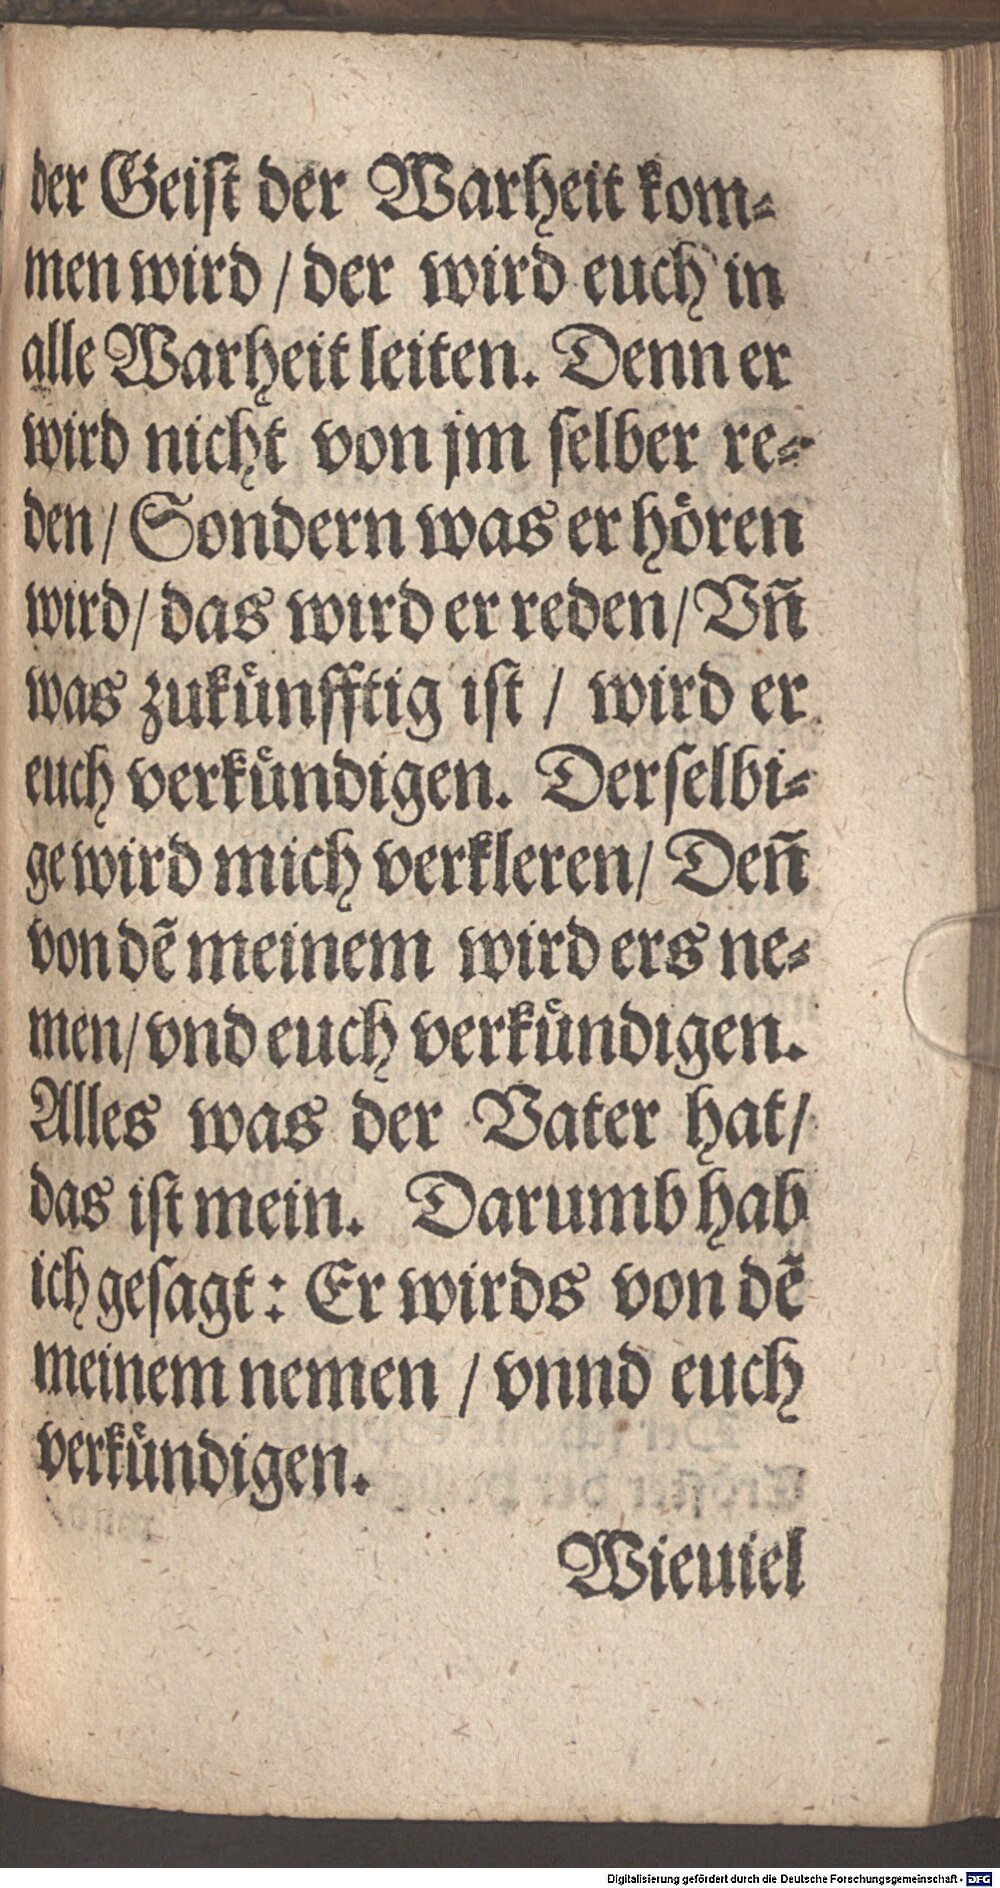 der Geiſt der Warheit kom⸗
men wird / der wird euch in
alle Warheit leiten. Denn er
wird nicht von jm ſelber re⸗
den / Sondern was er hoͤren
wird / das wird er reden / Vñ
was zukuͤnfftig iſt / wird er
euch verkuͤndigen. Derſelbi⸗
ge wird mich verkleren / Deñ
von dẽ meinem wird ers ne⸗
men / vnd euch verkuͤndigen.
Alles was der Vater hat /
das iſt mein. Darumb hab
ich geſagt : Er wirds von dẽ
meinem nemen / vnnd euch
verkuͤndigen.
Wieuiel
Digitalisierung gefördert durch die Deutsche Forschungsgemeinschaft - DFG